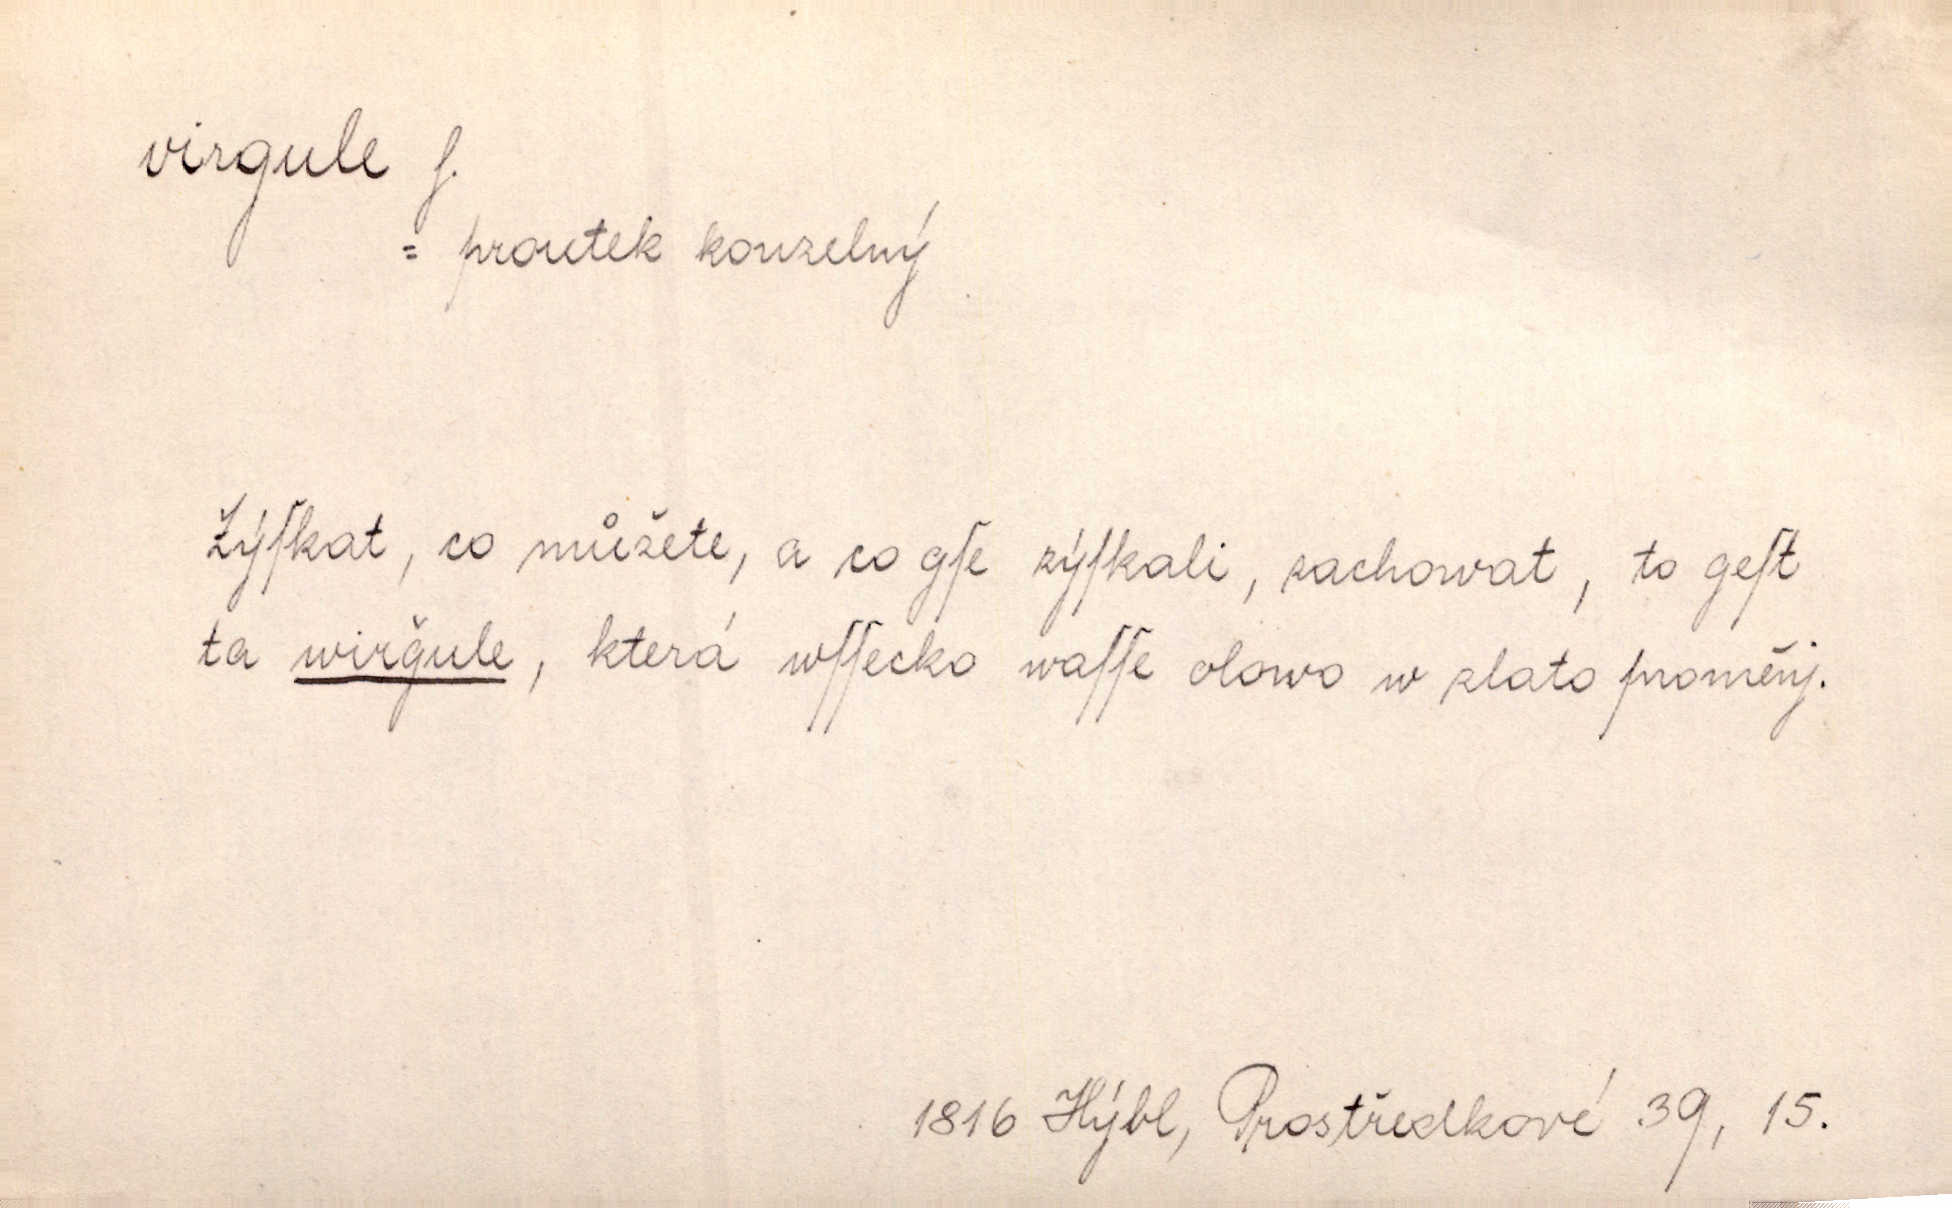 virgule f.
= proutek kouzelný
Zýſkat, co můžete, a co gſe zýſkali, zachowat, to geſt
ta wirǧule, která wſſecko waſſe olowo w zlato proměňj.
1816 Hýbl, Prostředkové 39, 15.